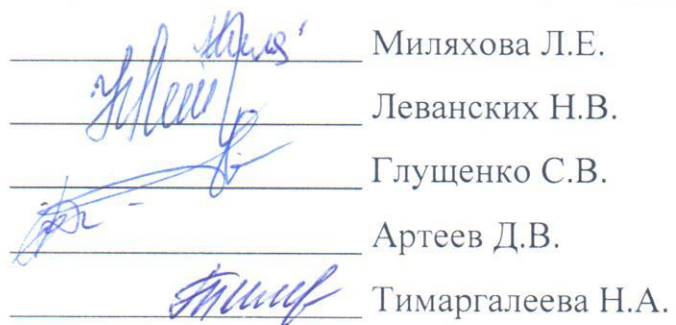 Миляхова Л.Е.
Леванских Н.В.
Глущенко С.В.
Артеев Д.В.
Тимаргалеева Н.А.